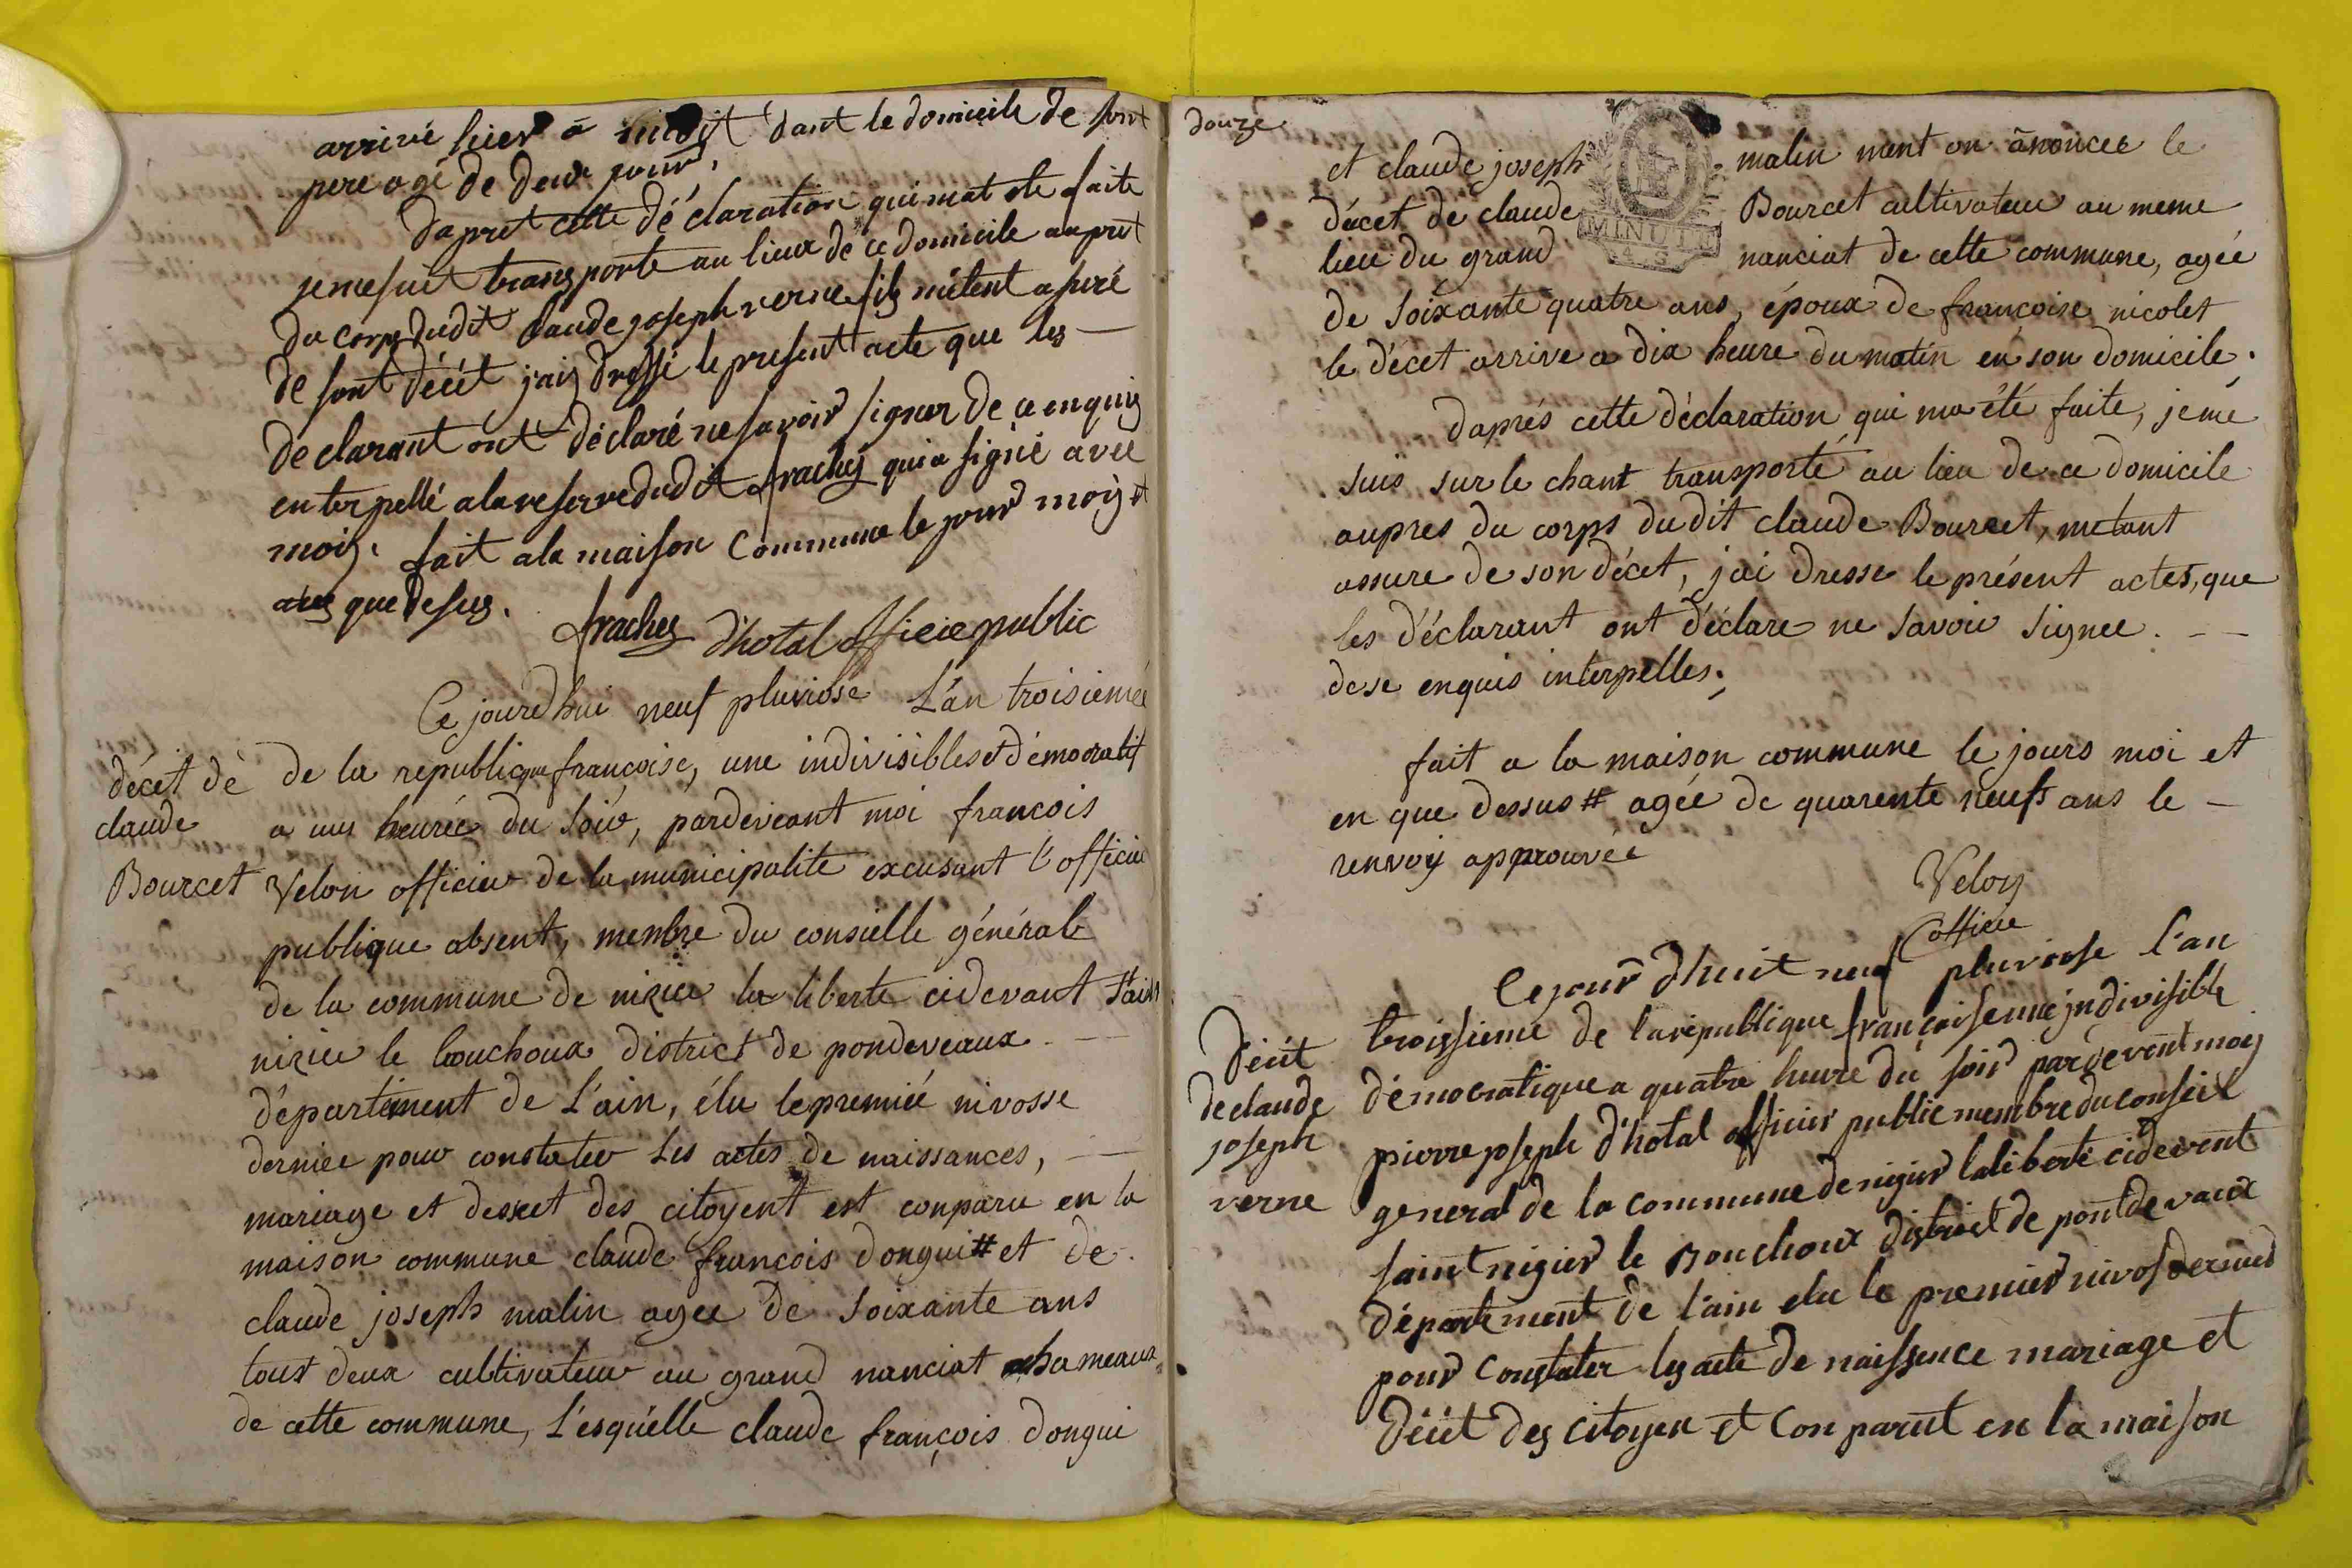 arrivé hier a midit dant le domicile de sont
pere agé de deux jour.
dapret cette déclaration qui mat ete faite
je me suit transporté au lieux de ce domicile aupret
du corps dudit claude joseph verne filz métent asuré
de sont décét j'aiz dréssé le present acte que les
declarant ont déclaré ne savoir signer de ce enquis
enterpellé ala reserve dudit frachez qui a signé avec
moiz. fait ala maison Commune le jour moiz et
ans que desus.
frachez d'hotal officie public
Ce jourd'hui neuf pluviose L'an troisiemée
décét dé
claude
Bourcet
de la republique françoise, une indivisibles et démocratif
a une heurée du soir, pardeveant moi francois
Velon officier de la municipalite excusant l'officier
publique absent, menbre du consielle générale
de la commune de nizier la liberte cidevant st'ain
nizier le bouchoux district de pondeveaux
département de L'ain, élu le premiée nivosse
derniee pour constater les actes de naissances,
mariage et desxet des citoyent est conparu en la
maison commune claude francois dongui # et de
claude joseph malin agee de soixante ans
tout deux cultivateur au grand nanciat hameaux
de cette commune, L'esquélle claude françois dongui
douze
et claude joseph malin ment on ânoncee le
décet de claude Bourcet cultivateur au meme
lieu du grand nanciat de cette commune, agée
MINUTE
4. S.
de soixante quatre ans, époux de francoise nicolet
le décet arrive a dix heure du matin en son domicile.
daprés cette déclaration qui ma été faite, je me
suis sur le chant transporté au lieu de ce domicile
aupres du corps du dit claude Bourcet, metant
assure de son décet, j'ai dresse le présent actes, que
les déclarant ont déclare ne savoir signee.
de se enquis interpelles.
fait a la maison commune le jours moi et
en que dessus # agée de quarente neufs ans le
renvoy approuvée
Veloy
officie
Ce jour d'huit neuf pluviose l'an
Décét
de claude
joseph
verne
troissieme de la republique françaisenne jndivisible
démocratique a quatre heure du soir pardevent moiy
pierre joseph d'hotal officier public membre du conseil
general de la commune de nigier la liberté cidevent
saint nigier le Bouchoux district de pont de vaux
département de l'ain elu le premier nivos dernier
pour constater les acte de naissence mariage et
Décét des citoyen et Conparut en la maison